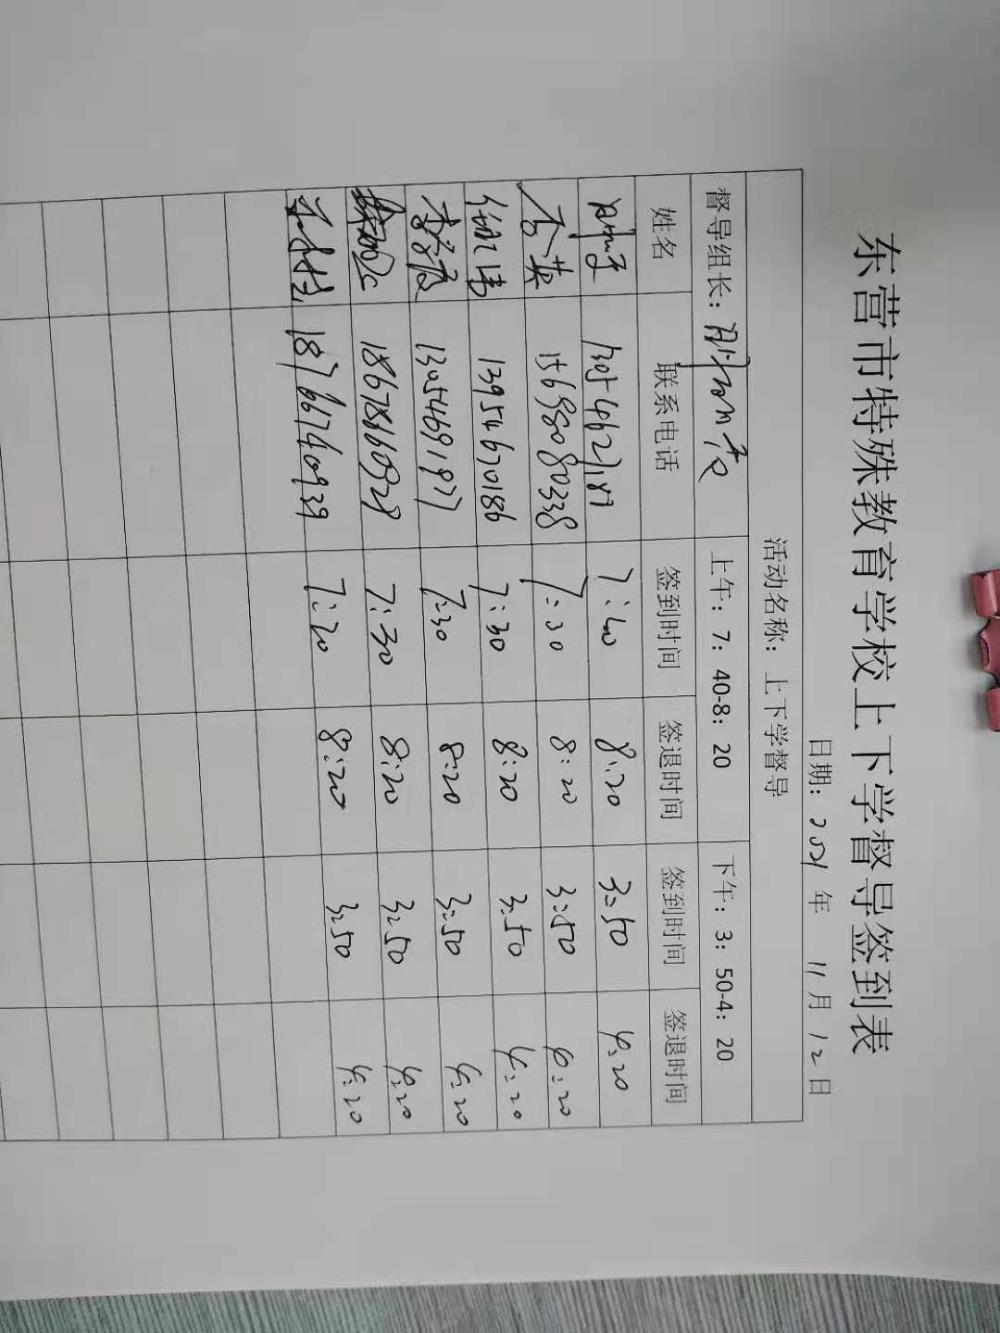 东营市特殊教育学校上下学督导签到表
日期：2021年 11月12日
活动名称：上下学督导
督导组长： 上午：7：40-8：20 下午：3：50-4：20
姓名 联系电话 签到时间 签退时间 签到时间 签退时间
7:40 8:20 3:50 4:20
李英 15698080338 7:30 8:20 3:50 4:20
13954670186 7:30 8:20 3:50 4:20
13054691977 7:30 8:20 3:50 4:20
18678660928 7:30 8:20 3:50 4:20
18766740939 7:20 8:20 3:50 4:20